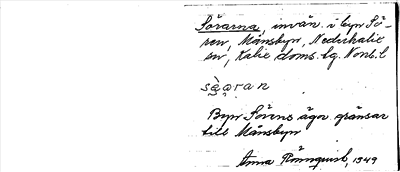 Sörarna, invån. i byn Sö-
ren, Månsbyn, Nederkalix
sn, Kalix doms. lg. Norrb. l
Byn Sörens ägor gränsar
till Månsbyn
Anna Rönnqvist, 1949